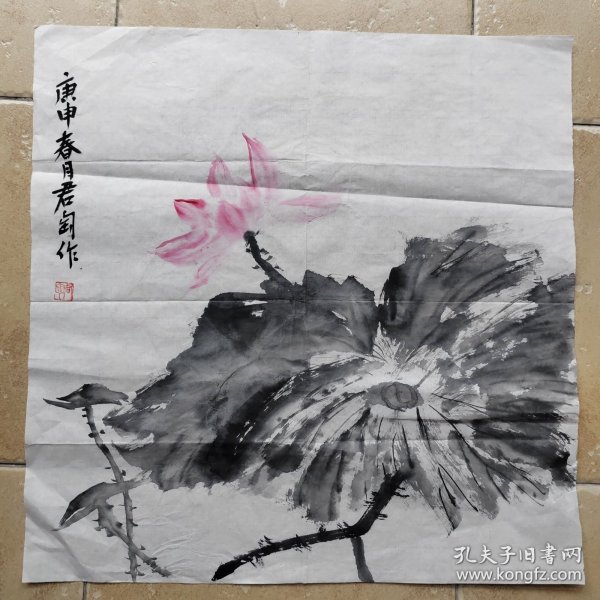 庚申春月君匋作
孔夫子旧書网
www.kongfz.com